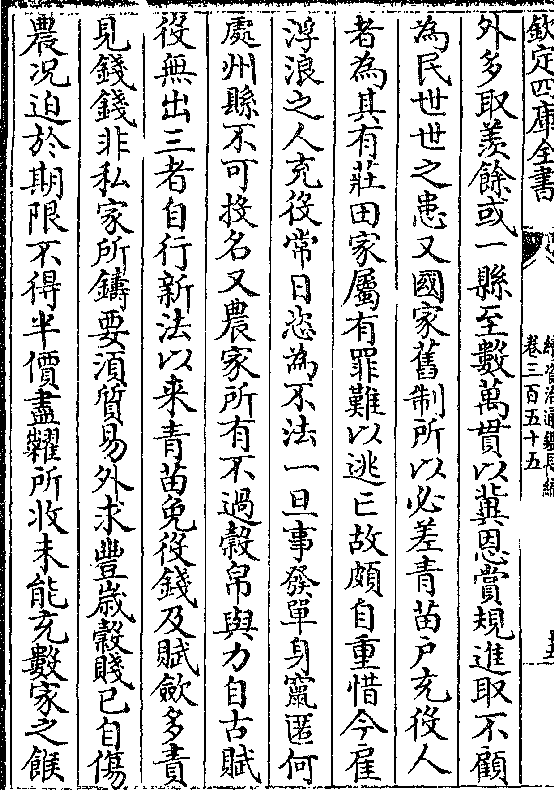 欽定四庫全書
續資治通鑑長編
卷三百五十五
外多取羨餘或一縣至數萬貫以冀恩賞規進取不顧
為民世世之患又國家舊制所以必差青苗户充役人
者為其有莊田家屬有罪難以逃亡故頗自重惜今雇
浮浪之人充役常日恣為不法一旦事發單身竄匿何
處州縣不可投名又農家所有不過穀帛與力自古賦
役無出三者自行新法以来青苗免役錢及賦斂多責
見錢錢非私家所鑄要須貿易外求豐歳穀賤已自傷
農况迫於期限不得半價盡糶所收未能充數家之餱